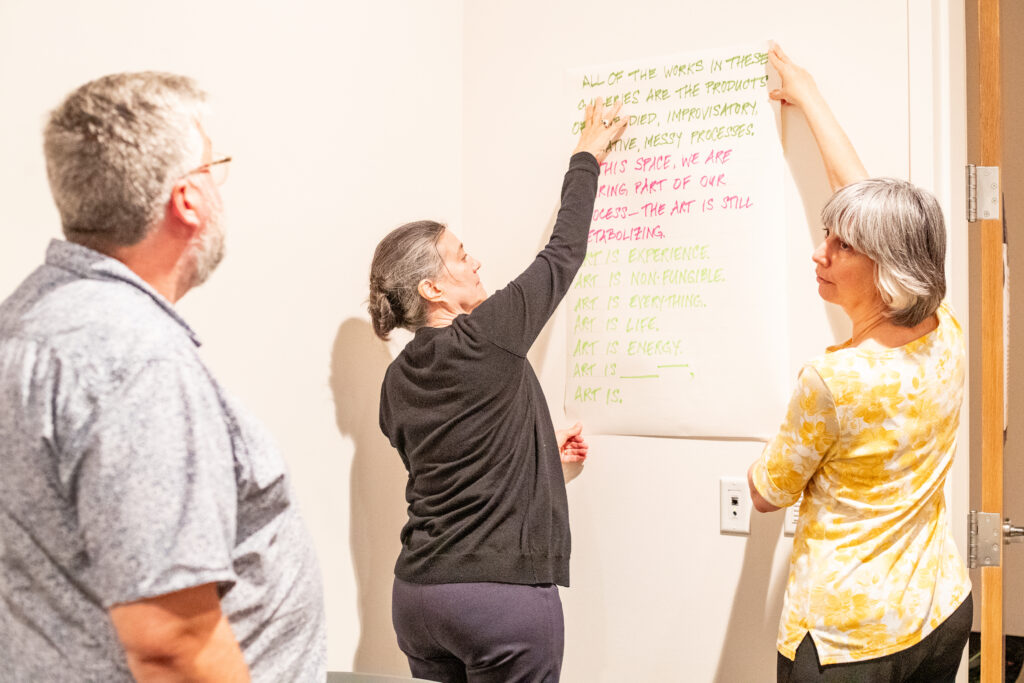 ALL OF THE WORKS IN THESE
ARE THE PRODUCTS
IMPROVISATORY,
MESSY PROCESSES.
THIS SPACE, WE ARE
PART OF OUR
THE ART IS STILL
METABOLIZING.
ART IS EXPERIENCE.
ART IS NON-FUNGIBLE.
ART IS EVERYTHING.
ART IS LIFE.
ART IS ENERGY.
ART IS ______,
ART IS.